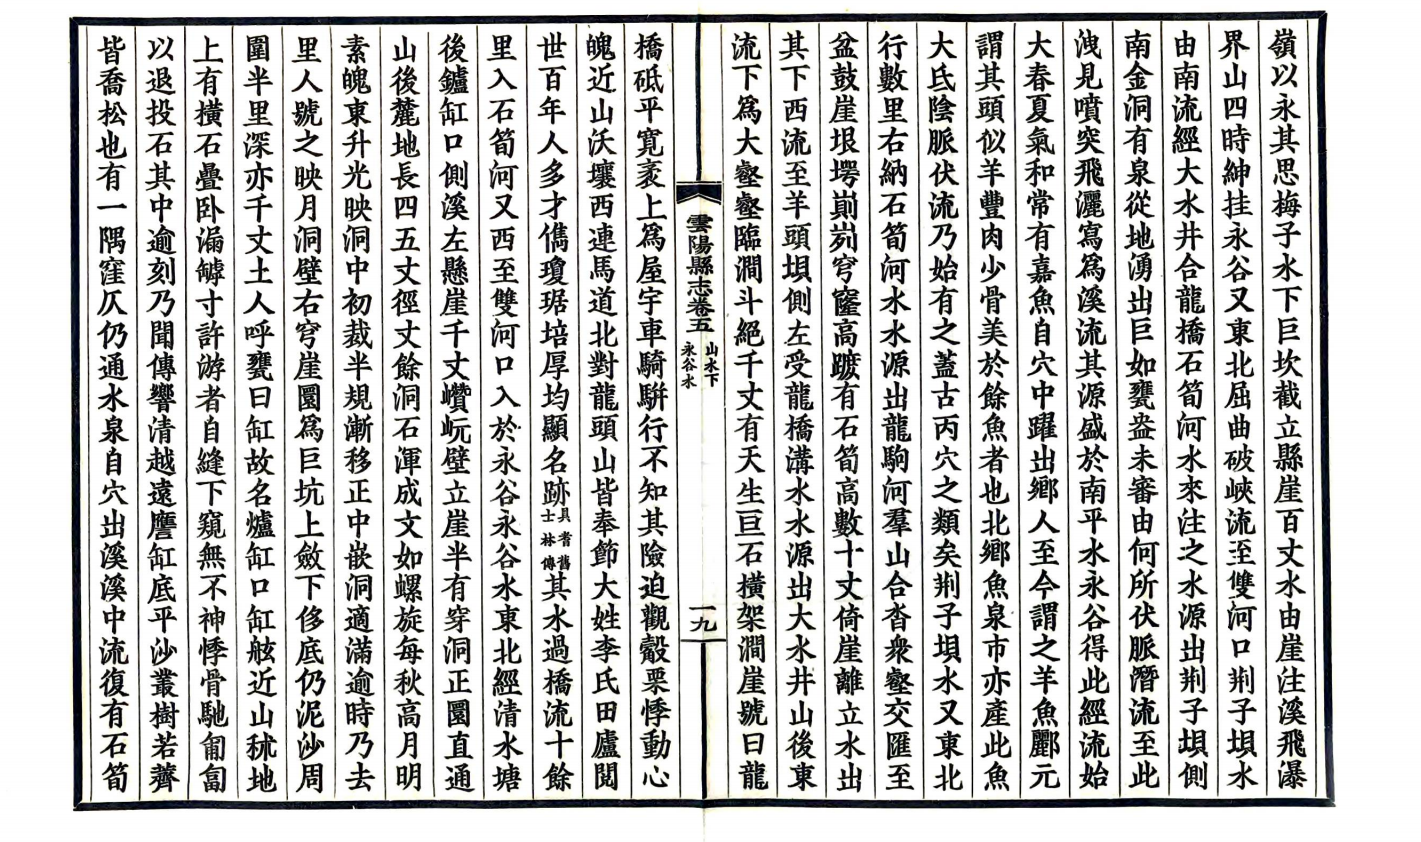 嶺以永其思梅子水下巨坎截立縣崖百丈水由崖注溪飛瀑
界山四時紳挂永谷又東北屈曲破峽流至雙河口荆子垻水
由南流經大水井合龍橋石筍河水來注之水源出荆子垻側
南金洞有泉從地湧出巨如甕盎未審由何所伏脈潛流至此
洩見噴突飛灑寫爲溪流其源盛於南平水永谷得此經流始
大春夏氣和常有嘉魚自穴中躍出鄉人至今謂之羊魚酈元
謂其頭似羊豐肉少骨美於餘魚者也北鄉魚泉市亦產此魚
大氐陰脈伏流乃始有之蓋古丙穴之類矣荆子垻水又東北
行數里右納石筍河水水源出龍駒河羣山合沓衆壑交匯至
盆鼓崖垠塄崱屴穹窿高躨有石筍高數十丈倚崖離立水出
其下西流至羊頭垻側左受龍橋溝水水源出大水井山後東
流下爲大壑壑臨澗斗絕千丈有天生巨石橫架澗崖號曰龍
雲陽縣志卷五
山水下
永谷水
一九
橋砥平寬袤上爲屋宇車騎騈行不知其險迫觀觳栗悸動心
魄近山沃壤西連馬道北對龍頭山皆奉節大姓李氏田廬閱
世百年人多才儁瓊琚培厚均顯名跡具耆舊士林傳其水過橋流十餘
里入石筍河又西至雙河口入於永谷永谷水東北經清水塘
後鑪缸口側溪左懸崖千丈巑岏壁立崖半有穿洞正圜直通
山後麓地長四五丈徑丈餘洞石渾成文如螺旋每秋高月明
素魄東升光映洞中初裁半規漸移正中嵌洞適滿逾時乃去
里人號之映月洞壁右穹崖圜爲巨坑上斂下侈底仍泥沙周
圍半里深亦千丈土人呼甕曰缸故名爐缸口缸舷近山秫地
上有橫石疊卧漏罅寸許游者自縫下窺無不神悸骨馳匍匐
以退投石其中逾刻乃聞傳響清越遠譍缸底平沙叢樹若薺
皆喬松也有一隅窪仄仍通水泉自穴出溪溪中流復有石筍